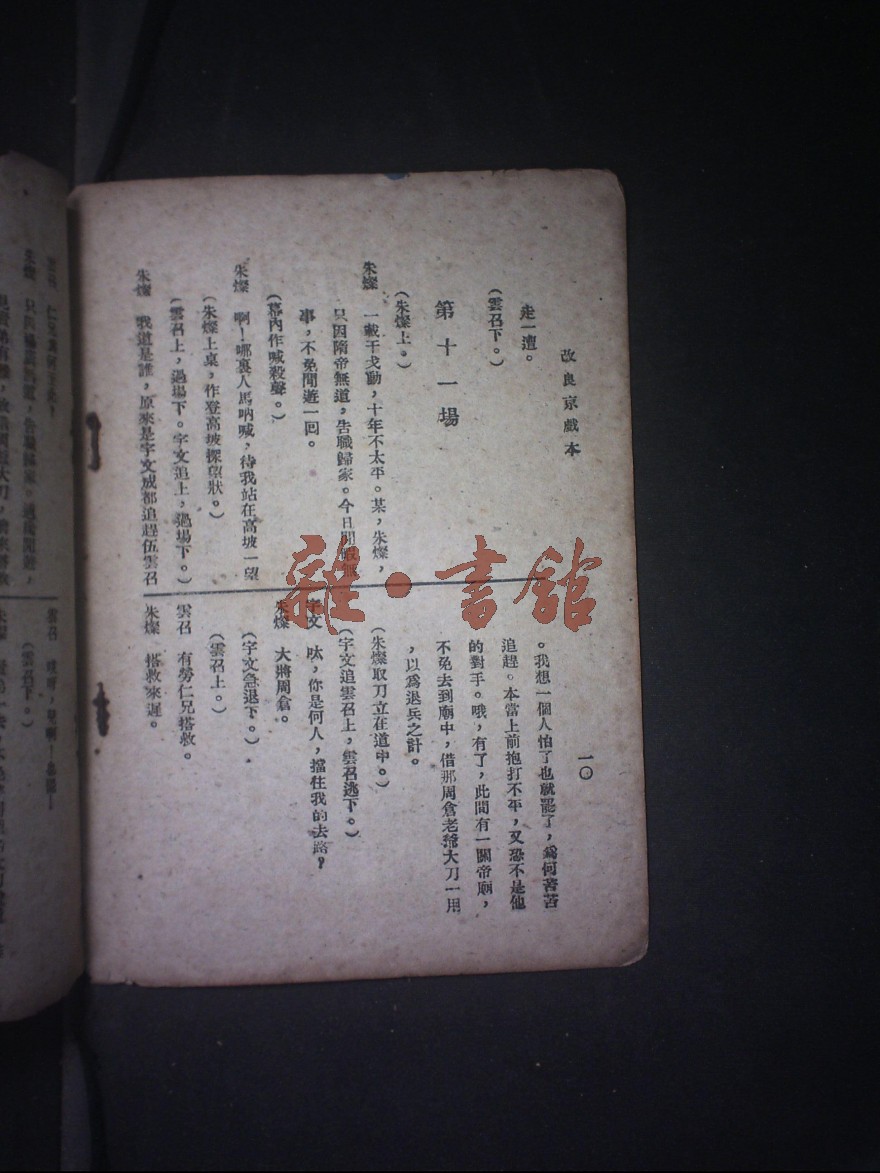 改良京戲本
一〇
走一遭。
(雲召下。)
第十一場
(朱燦上。)
朱燦 一載干戈動，十年不太平。某，朱燦，
只因隋帝無道，告職歸家。今日閒暇無
事，不免閒遊一回。
(幕內作喊殺聲。)
朱燦 啊！哪裏人馬吶喊，待我站在高坡一望
(朱燦上桌，作登高坡探望狀。)
(雲召上，過場下。宇文追上，過場下。)
朱燦 我道是誰，原來是宇文成都追趕伍雲召
。我想一個人怕了也就罷了，爲何苦苦
追趕。本當上前抱打不平，又恐不是他
的對手。哦，有了，此間有一關帝廟，
不免去到廟中，借那周倉老爺大刀一用
，以爲退兵之計。
(朱燦取刀立在道中。)
(宇文追雲召上，雲召逃下。)
宇文 呔，你是何人，擋住我的去路？
朱燦 大將周倉。
(宇文急退下。)
(雲召上。)
雲召 有勞仁兄搭救。
朱燦 搭救來遲。
雜·書館